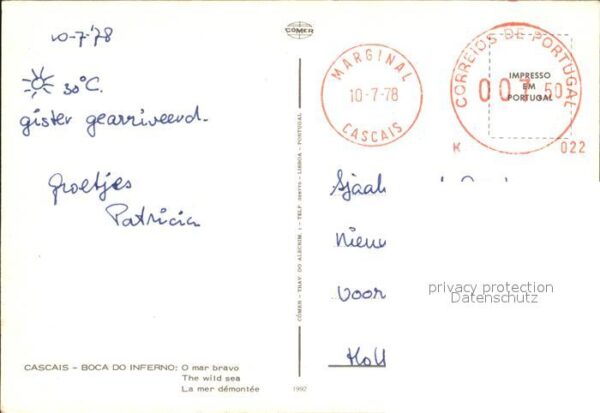 10-7-'78
30°C.
gister gearriveerd.
Groetjes
Patricia
CASCAIS – BOCA DO INFERNO: O mar bravo
The wild sea
La mer démontée
1992
CÓMER
CÓMER – TRAV. DO ALECRIM, 1 – TELF. – LISBOA – PORTUGAL
MARGINAL
10-7-78
CASCAIS
CORREIOS DE PORTUGAL
IMPRESSO
EM
PORTUGAL
007 50
K 022
Sjaak
Nieuw
Voor
Holl
privacy protection
Datenschutz